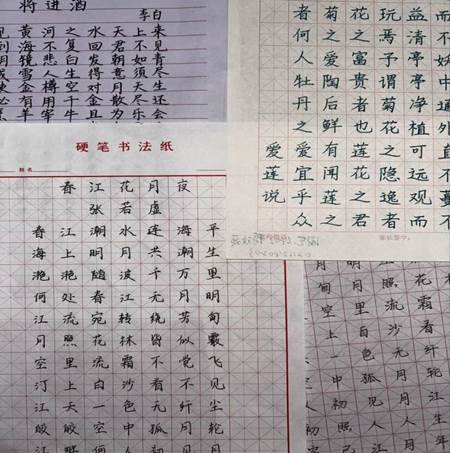 将进酒
李白
见黄河之水天上来
到海不复回君不见
明镜悲白发朝如青
成雪人生得意须尽
使金樽空对月天生
必有用千金散尽还
烹羊宰牛且为乐会
而不妖中通外直不蔓不
益清亭亭净植可远观而
玩焉予谓菊花之隐逸者
花之富贵者也莲花之君
菊之爱陶后鲜有闻莲之
者何人牡丹之爱宜乎众
爱莲说
硬笔书法纸
姓名
春江花月夜
张若虚
春江潮水连海平
海上明月共潮生
滟滟随波千万里
何处春江无月明
江流宛转绕芳甸
月照花林皆似霰
空里流霜不觉飞
汀上白沙看不见
江天一色无纤尘
皎皎空中孤月轮
月照花
空里流霜
上白沙看
一色无纤
中孤月轮
初见月江
照人人生